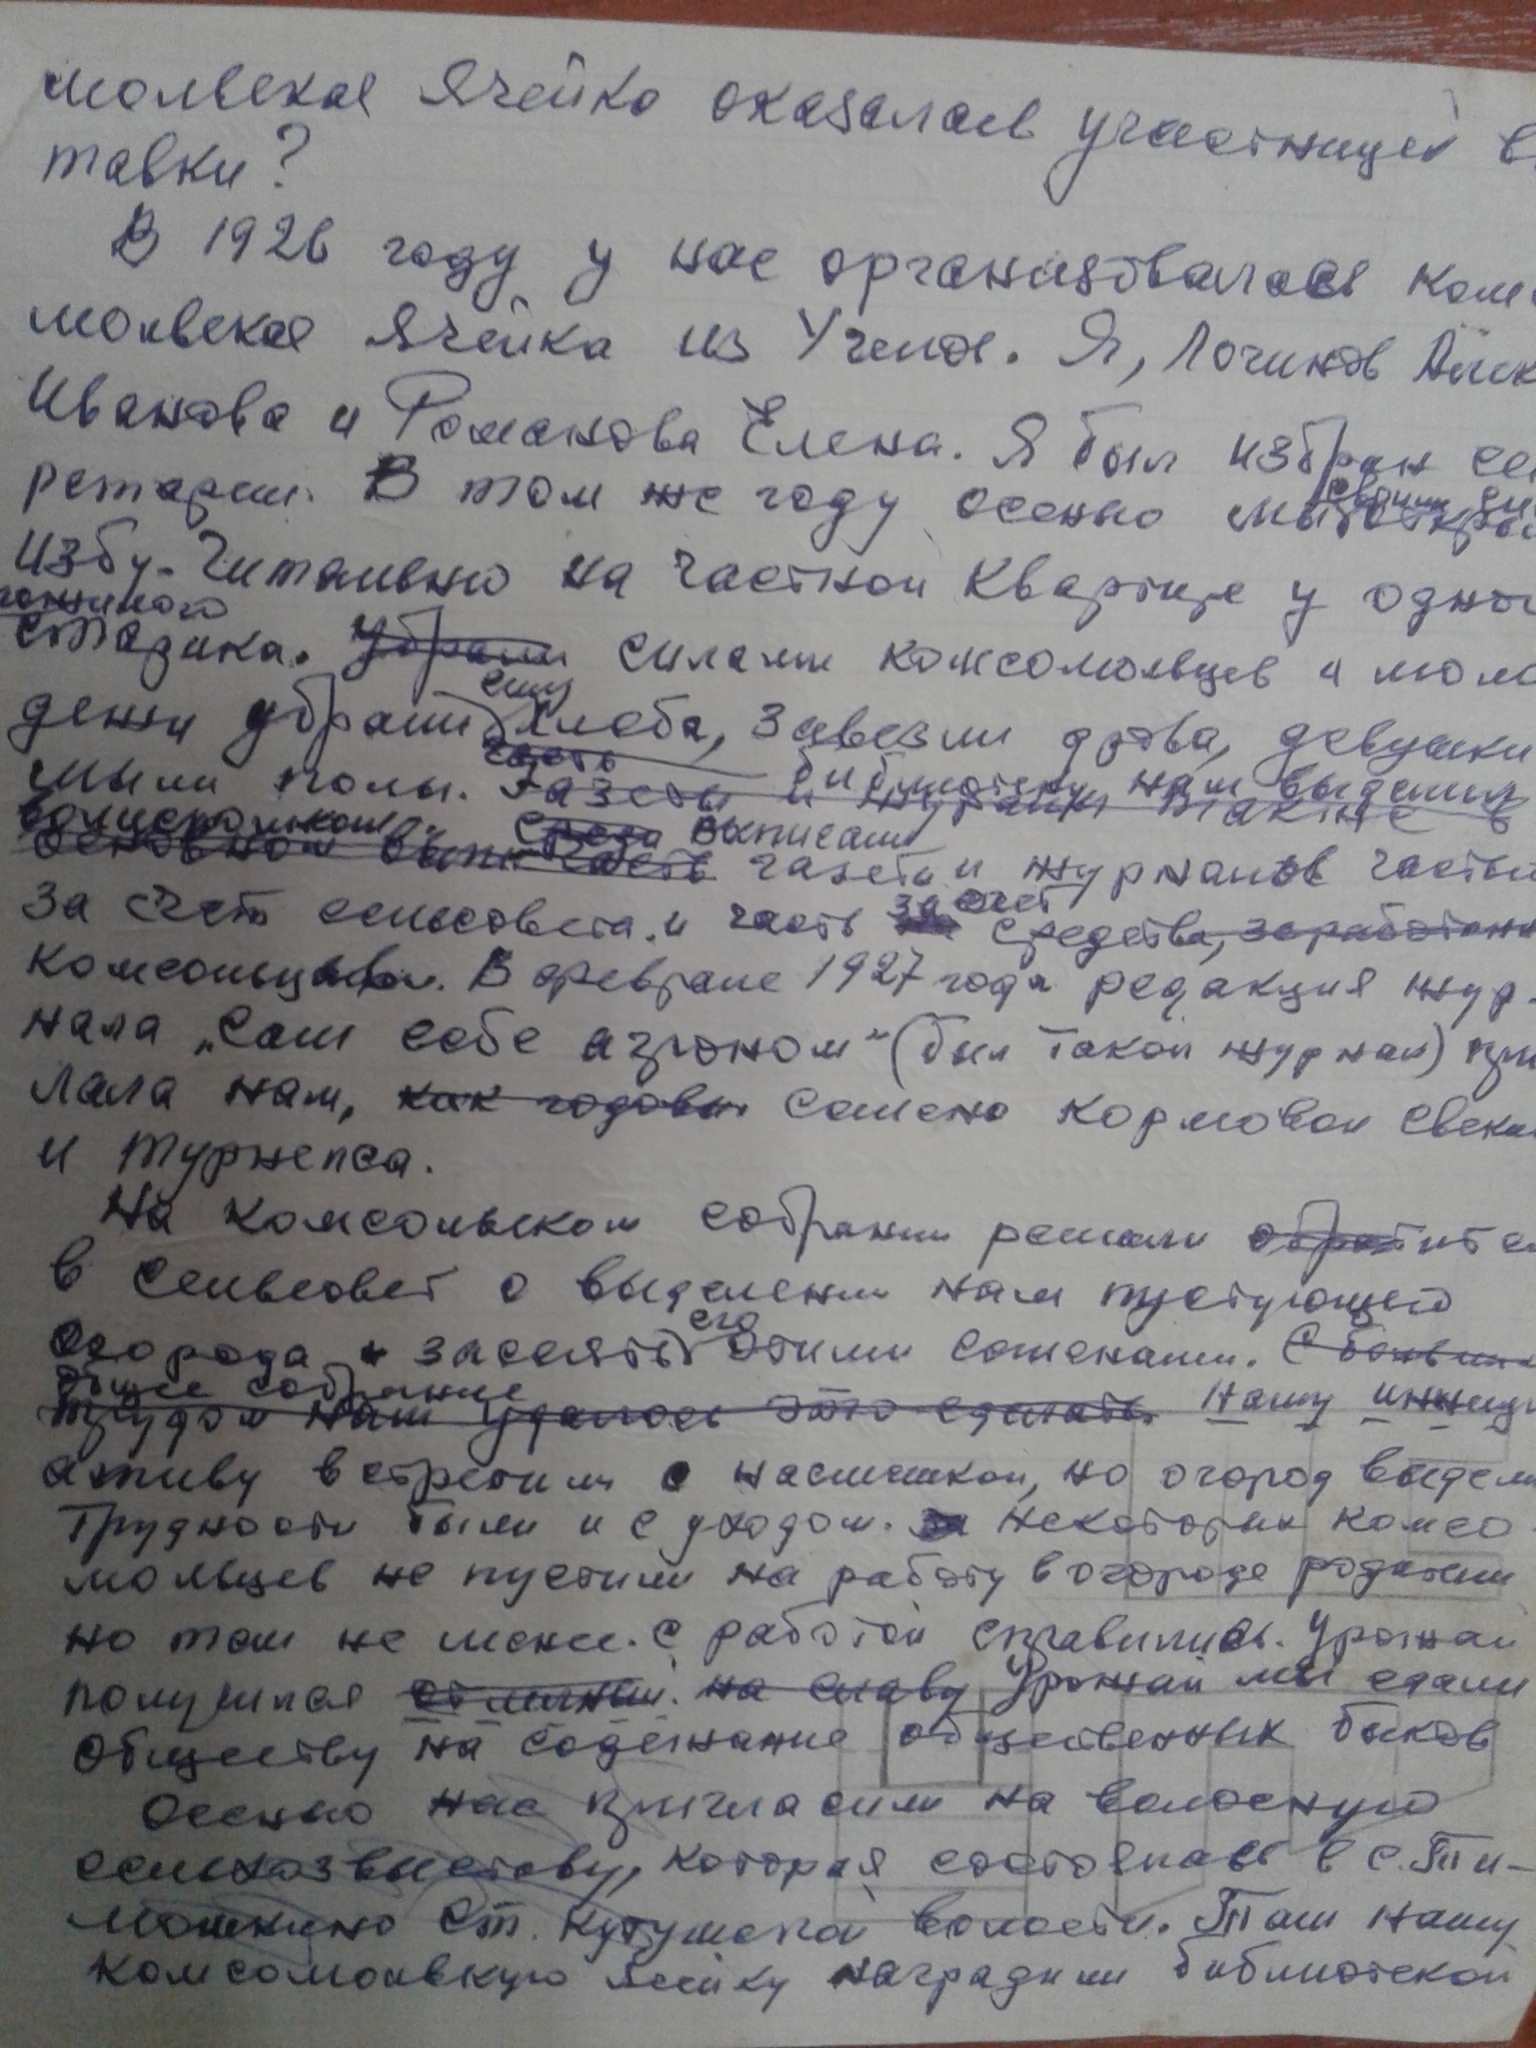 мольская ячейка оказалась участницей в
тавки?
В 1926 году у нас организовалась ком
мольская ячейка из 4 членов. Я, Логинов
Иванова и Романова Елена. Я был избран сек
ретарем. В том же году осенью мы открыл
своими
избу-читальню на частной квартире у одно
старика. Убрали силами комсомольцев и моло
дежи убрали хлеба, завезли дрова, девушки
ему
мыли полы. Газеты и журналы также в
часть библиотеки нам выделил
волисполкомом. выписали
основном газеты и журналов частью
за счет сельсовета и часть за счет средства, заработан
комсомольцы. В феврале 1927 года редакция жур-
нала „Сам себе агроном" (был такой журнал) при
лала нам, как годовы семена кормовой свеклы
и турнепса.
На комсомольском собрании решили обратится
в сельсовет о выделении нам пустующего
огорода и засеять его этими семенами. С большим
общее собрание
трудом нам удалось это сделать. Нашу иници
ативу встретили с насмешкой, но огород выдели
Трудности были и с уходом. некоторых комсо-
мольцев не пустили на работу в огороде родители
но тем не менее с работой справились. Урожай
получился отличный. на славу Урожай мы сдали
обществу на содержание общественных быков
Осенью нас пригласили на волостную
сельхозвыставу, которая состоялась в с. Ти-
мошкино Ст. Кутушской волости. Там нашу
комсомольскую ячейку наградили библиотекой